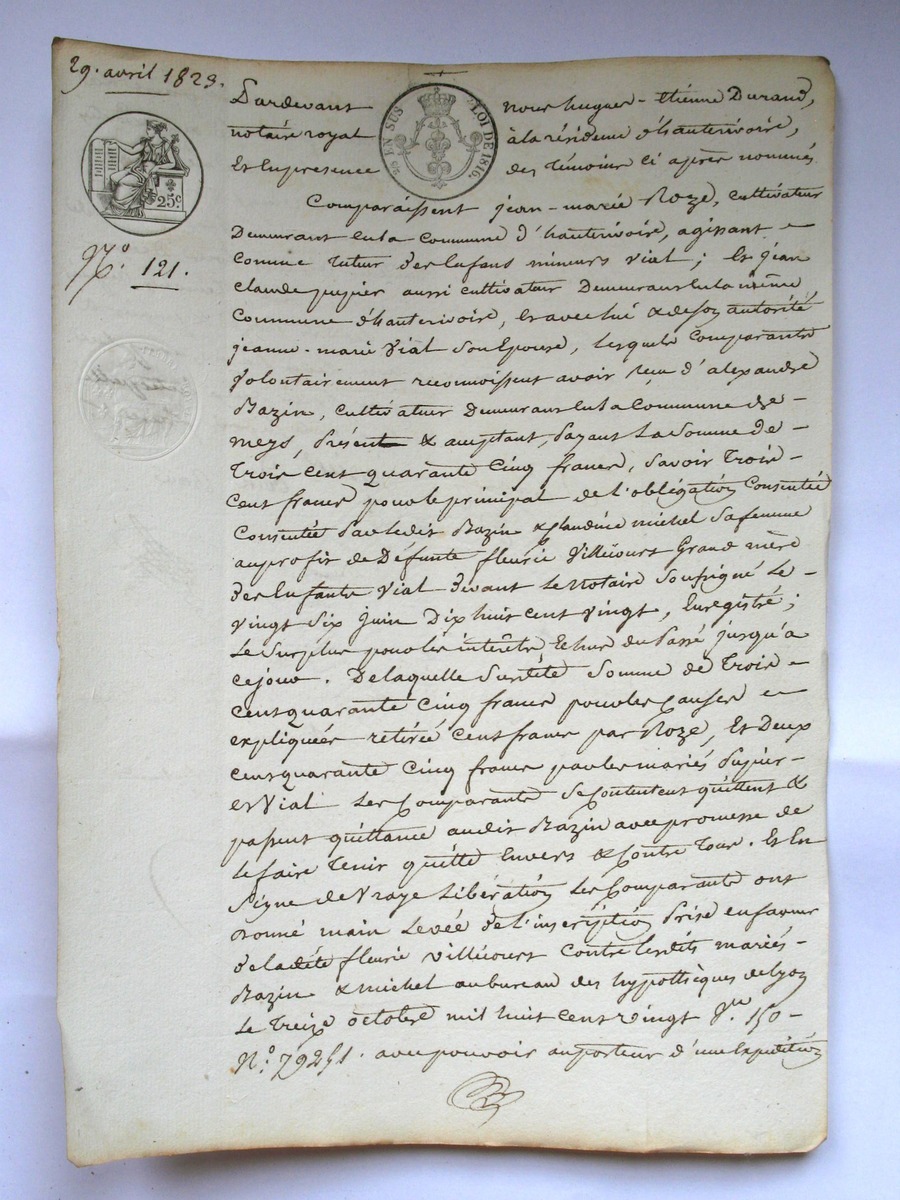 29. avril 1823.
Pardevant nous hugues-étienne Durand,
notaire royal à la résidence d'hauterivoire,
Et En presence des témoins ci après nommés
EN SUS
LOI DE 1816.
25c
N.° 121.
Comparaissent jean-marie Roze, cultivateur
Demeurant En la Commune d'hauterivoire, agissant
comme tuteur des Enfans mineurs vial; Et jean
claude pupier aussi cultivateur Demeurant En la même
Commune d'hauterivoire, Et avec lui & de son autorité
jeanne-marie Vial Son Epouse, lesquels comparants
Volontairement reconnoissent avoir reçu d'alexandre
Bazin, cultivateur Demeurant En la Commune de
meys, présent & acceptant, payant La Somme de
Trois cent quarante Cinq francs, Savoir Trois
Cent francs pour le principal de l'obligation Consentie
Consentie par ledit Bazin & Claudine michel Sa femme
au profit de Défunte fleurie Villecourt Grand mère
des Enfants Vial devant le Notaire Soussigné le
vingt Six juin Dix huit cent vingt, Enregistré;
Le Surplus pour les intérêts Echus du passé jusqu'a
ce jour. De laquelle Susdite Somme de Trois
cent quarante Cinq francs pour les Causes
expliquées retirée Cent francs par Roze, Et Deux
cent quarante Cinq francs par les mariés pupier
et Vial Les Comparants Se Contentent quittent &
passent quittance audit Bazin avec promesse de
le faire Tenir quitte Envers & Contre Tous. Et En
Signe de Vraye Libération Les Comparants ont
donné main Levée de l'inscription prise en faveur
de la dite fleurie villecourt contre les dits mariés
Bazin & michel au bureau des hypothèques de Lyon
le Treize octobre mil huit cent vingt V.me 150
N.° 79251. avec pouvoir au porteur d'une Expédition